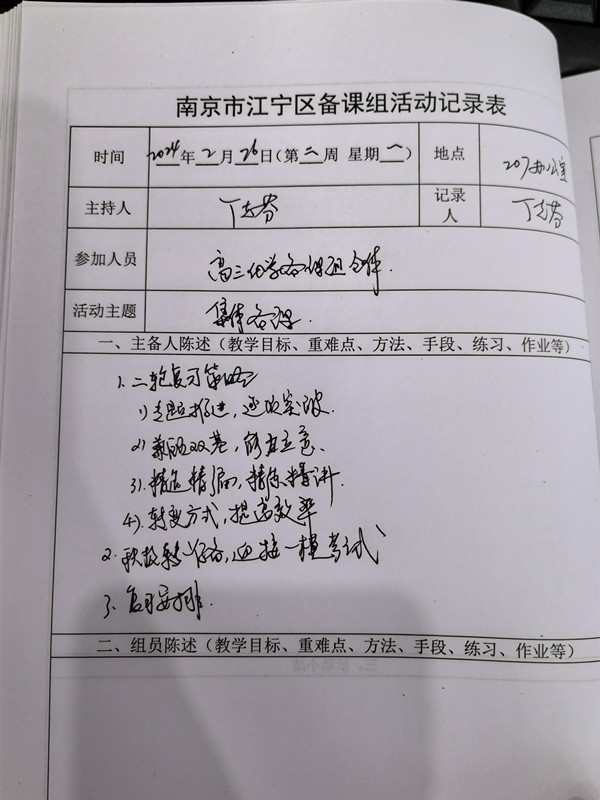 南京市江宁区备课组活动记录表
时间 2024年2月26日(第二周 星期一) 地点 207办公室
主持人 丁志芬 记录人 丁志芬
参加人员 高三化学备课组全体.
活动主题 集体备课.
一、主备人陈述(教学目标、重难点、方法、手段、练习、作业等)
1. 二轮复习策略
1) 专题推进, 逐项突破.
2) 兼顾双基,
3). 精选精编, 精练精讲.
4). 转变方式, 提高效率
2. 积极准备, 迎接一模考试
3. 复习安排.
二、组员陈述(教学目标、重难点、方法、手段、练习、作业等)